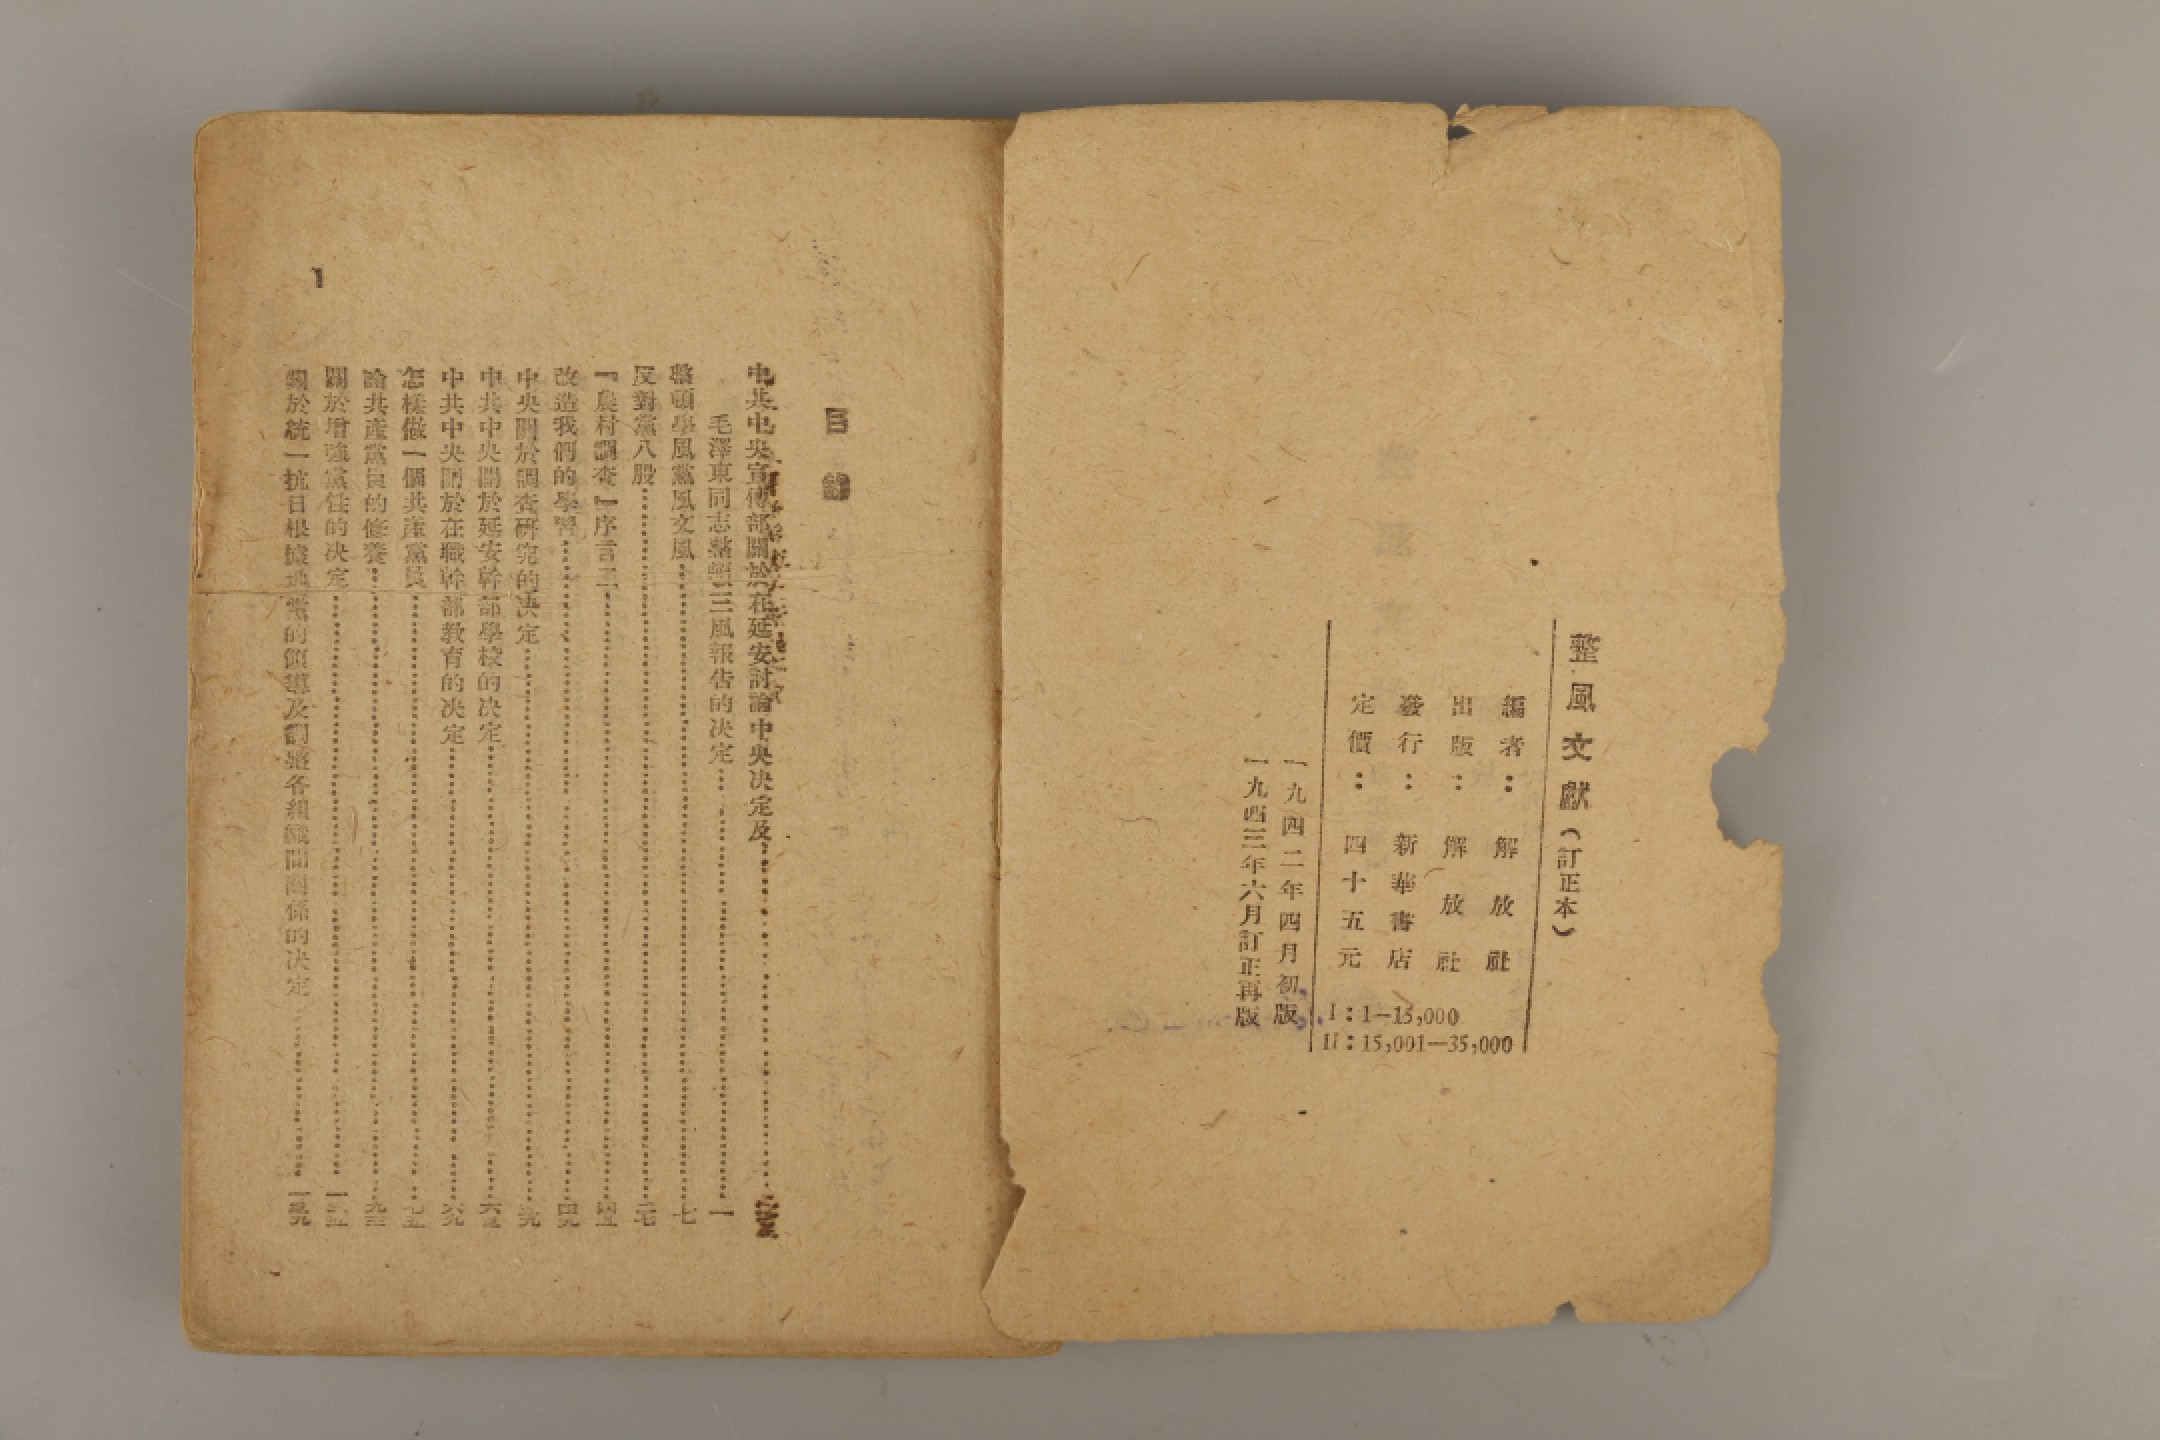 整風文獻（訂正本）
編者：解放社
出版：解放社
發行：新華書店
定價：四十五元
I：1—15,000
II：15,001—35,000
一九四二年四月初版
一九四三年六月訂正再版
目錄
中共中央宣傳部關於在延安討論中央决定及
毛澤東同志整頓三風報告的决定……一
整頓學風黨風文風……七
反對黨八股……二七
『農村調查』序言二……四五
改造我們的學習……四九
中央關於調查研究的决定……五九
中共中央關於延安幹部學校的决定……六三
中共中央關於在職幹部教育的决定……六九
怎樣做一個共產黨員……七五
論共產黨員的修養……九三
關於增強黨性的决定……一三五
關於統一抗日根據地黨的領導及調整各組織間關係的决定……一三九
1